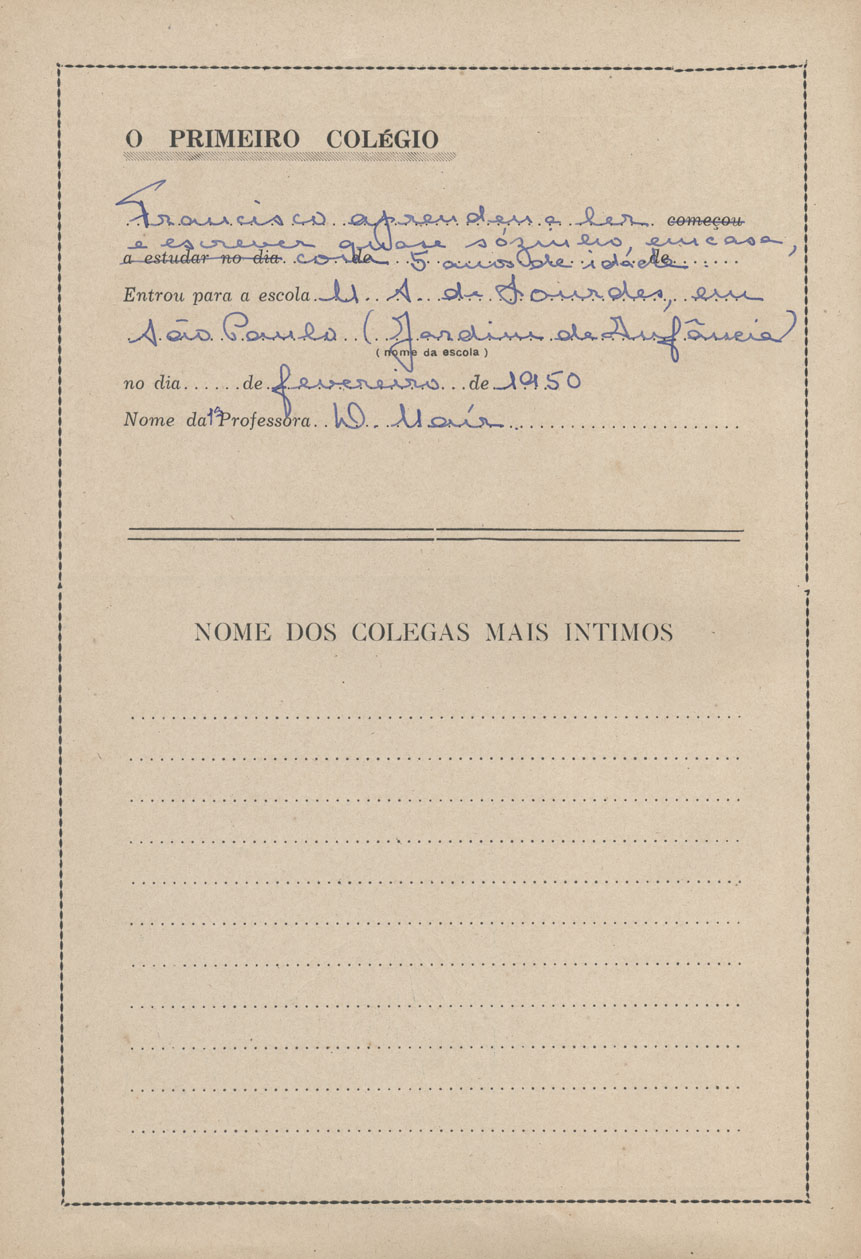 O PRIMEIRO COLÉGIO
Francisco aprendeu a ler começou
e escrever quase sózinho, em casa,
a estudar no dia com de 5 anos de idade de
Entrou para a escola N. S. de Lourdes, em
São Paulo (Jardim de Infância)
(nome da escola)
no dia......de fevereiro...de 1950
Nome da 1ª Professora..D. Nair
NOME DOS COLEGAS MAIS INTIMOS